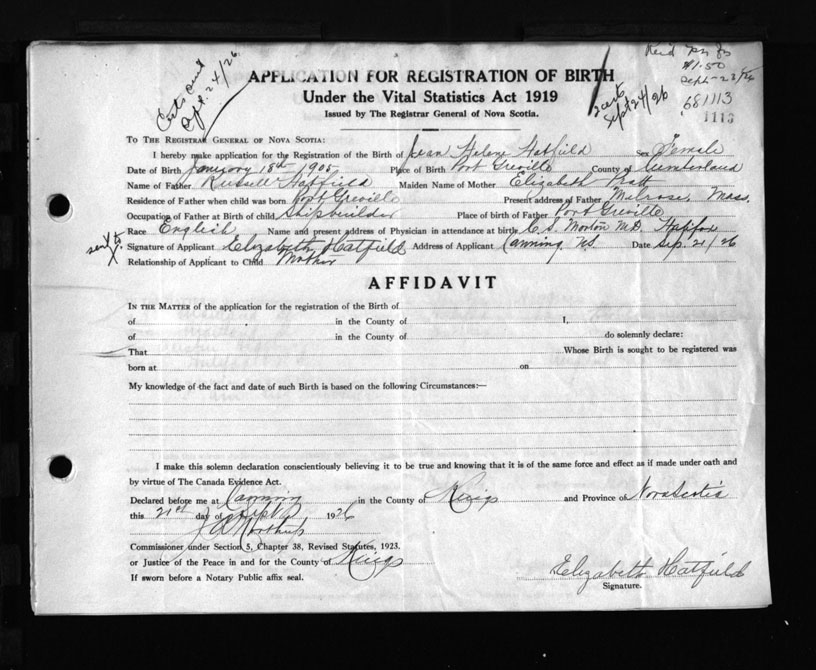 Certs sent
Sept. 24/26
2 certs
Sept 24/26
$1.50
Sept-23/26
681113
1113
APPLICATION FOR REGISTRATION OF BIRTH
Under the Vital Statistics Act 1919
Issued by The Registrar General of Nova Scotia.
TO THE REGISTRAR GENERAL OF NOVA SCOTIA:
I hereby make application for the Registration of the Birth of Jean Helene Hatfield Sex Female
Date of Birth January 15th 1905 Place of Birth Port Greville County of Cumberland
Name of Father Russell Hatfield Maiden Name of Mother Elizabeth
Residence of Father when child was born Port Greville Present address of Father Melrose, Mass.
Occupation of Father at Birth of child, Shipbuilder Place of birth of Father Port Greville
Race English Name and present address of Physician in attendance at birth C. S. Morton M.D. Halifax
sent to
Signature of Applicant Elizabeth Hatfield Address of Applicant Canning N.S. Date Sep. 21/26
Relationship of Applicant to Child Mother
AFFIDAVIT
IN THE MATTER of the application for the registration of the Birth of
of in the County of I,
of in the County of do solemnly declare:
That Whose Birth is sought to be registered was
born at on
My knowledge of the fact and date of such Birth is based on the following Circumstances:—
I make this solemn declaration conscientiously believing it to be true and knowing that it is of the same force and effect as if made under oath and
by virtue of The Canada Evidence Act.
Declared before me at Canning in the County of Kings and Province of Nova Scotia
this 21st day of Sept 1926
Commissioner under Section 5, Chapter 38, Revised Statutes, 1923.
or Justice of the Peace in and for the County of Kings
If sworn before a Notary Public affix seal.
Elizabeth Hatfield
Signature.